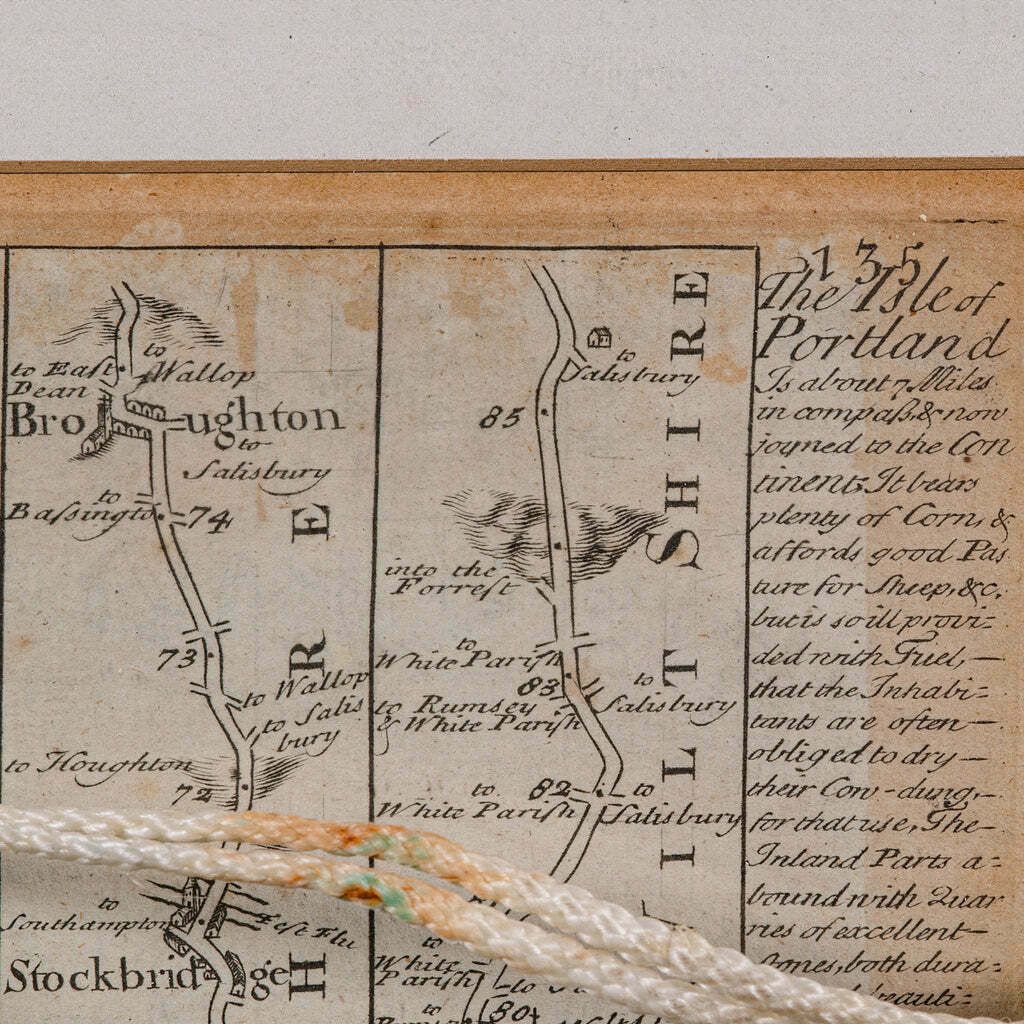 135
to East
Dean
to
Wallop
Broughton
to
Salisbury
to
Bassington
74
73
to Wallop
to Salis
bury
to Houghton
72
to
Southampton
Test Flu
Stockbridge
H
R
E
to
Salisbury
85
into the
Forrest
to
White Parish
83
to
Salisbury
to Rumsey
& White Parish
82
to
White Parish
to
Salisbury
to
White
Parish
to
80
to
ILTSHIRE
The Isle of
Portland
Is about 7 Miles
in compass, & now
joyned to the Con
tinent; It bears
plenty of Corn, &
affords good Pas
ture for Sheep, &c.
but is so ill provi=
ded with Fuel, —
that the Inhabi=
tants are often —
obliged to dry —
their Cow-dung, —
for that use, The —
Inland Parts a=
bound with Quar
ries of excellent —
Stones, both dura=
beauti=